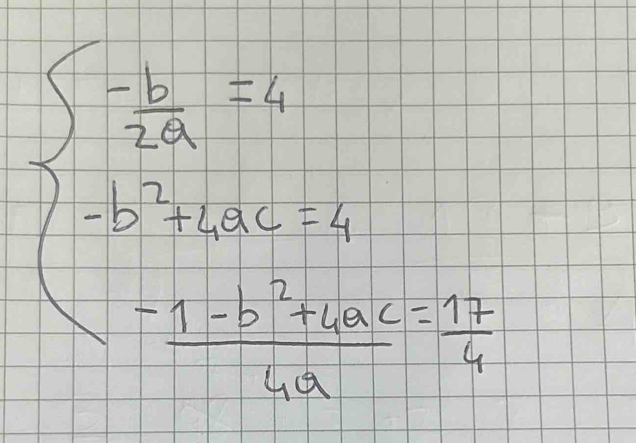 -b/2a = 4
-b²+4ac = 4
-1-b²+4ac/4a = 17/4